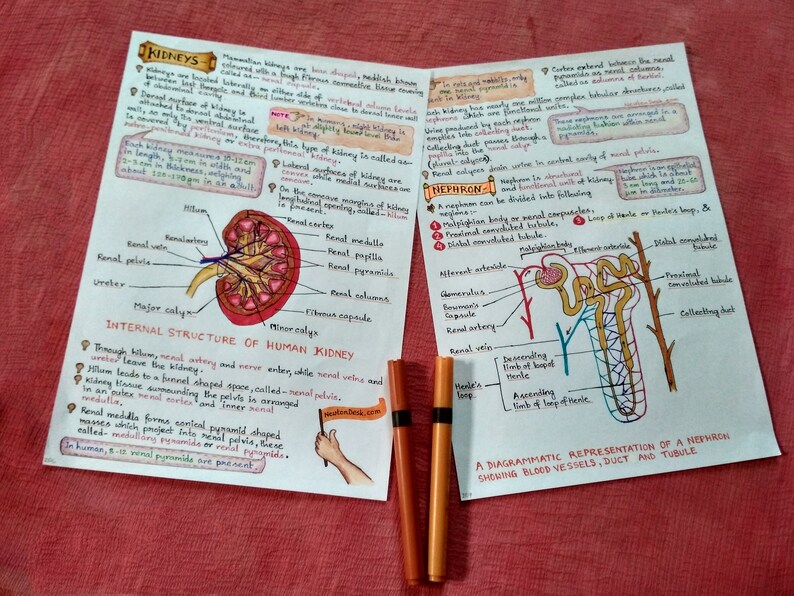 KIDNEYS-
Mammalian kidneys are bean shaped, reddish brown
coloured with a tough fibrous connective tissue covering
called as- renal capsule.
Kidneys are located laterally on either side of vertebral column levels
between last thoracic and third lumber vertebra close to dorsal inner wall
of abdominal cavity
Dorsal surface of kidney is
attached to dorsal abdominal
wall, so only its ventral surface
is covered by peritonium, therefore, this type of kidney is called as-
retro-peritonial kidney or extra peritoneal kidney.
NOTE
In humans, right kidney is
at slightly lower level than
left kidney.
Each kidney measures 10-12 cm
in length, 5-7 cm in width and
2-3 cm in thickness, weighing
about 120-170 gm in an adult.
Lateral surfaces of kidney are
convex while medial surfaces are
concave.
On the concave margins of kidney
longitudinal opening, called- hilum
is present.
Hilum
Renal artery
Renal vein
Renal pelvis
Ureter
Major calyx
Renal cortex
Renal medulla
Renal papilla
Renal pyramids
Renal columns
Fibrous capsule
Minor calyx
INTERNAL STRUCTURE OF HUMAN KIDNEY
Through hilum, renal artery and nerve enter, while renal veins and
ureter leave the kidney.
Hilum leads to a funnel shaped space, called- renal pelvis.
Kidney tissue surrounding the pelvis is arranged
in an outer renal cortex and inner renal
medulla.
Renal medulla forms conical pyramid shaped
masses which project into renal pelvis, these
called- medullary pyramids or renal pyramids.
In human, 8-12 renal pyramids are present.
NewtonDesk.com
In rats and rabbits, only
one renal pyramid is
in kidney.
Cortex extend between the renal
pyramids as renal columns,
called as columns of Bertini.
Each kidney has nearly one million complex tubular structures, called
nephrons which are functional units.
Urine produced by each nephron
empties into collecting duct.
Collecting duct passes through a
papilla into the renal calyx
(plural- calyces)
These nephrons are arranged in a
radiating fashion within renal
pyramids.
Renal calyces drain urine in central cavity of renal pelvis.
NEPHRON-
Nephron is structural
and functional unit of kidney.
Nephron is an epithelial
tube which is about
3 cm long and
μm in diameter.
A nephron can be divided into following
regions:-
1 Malpighian body or renal corpuscles,
2 Proximal convoluted tubule,
3 Loop of Henle or Henle's loop, &
4 Distal convoluted tubule.
Malpighian body
Efferent arteriole
Afferent arteriole
Glomerulus
Bowman's
Capsule
Renal artery
Renal vein
Distal convoluted
tubule
Proximal
convoluted tubule
Collecting duct
Henle's
loop
Descending
limb of loop of
Henle
Ascending
limb of loop of Henle
A DIAGRAMMATIC REPRESENTATION OF A NEPHRON
SHOWING BLOOD VESSELS, DUCT AND TUBULE